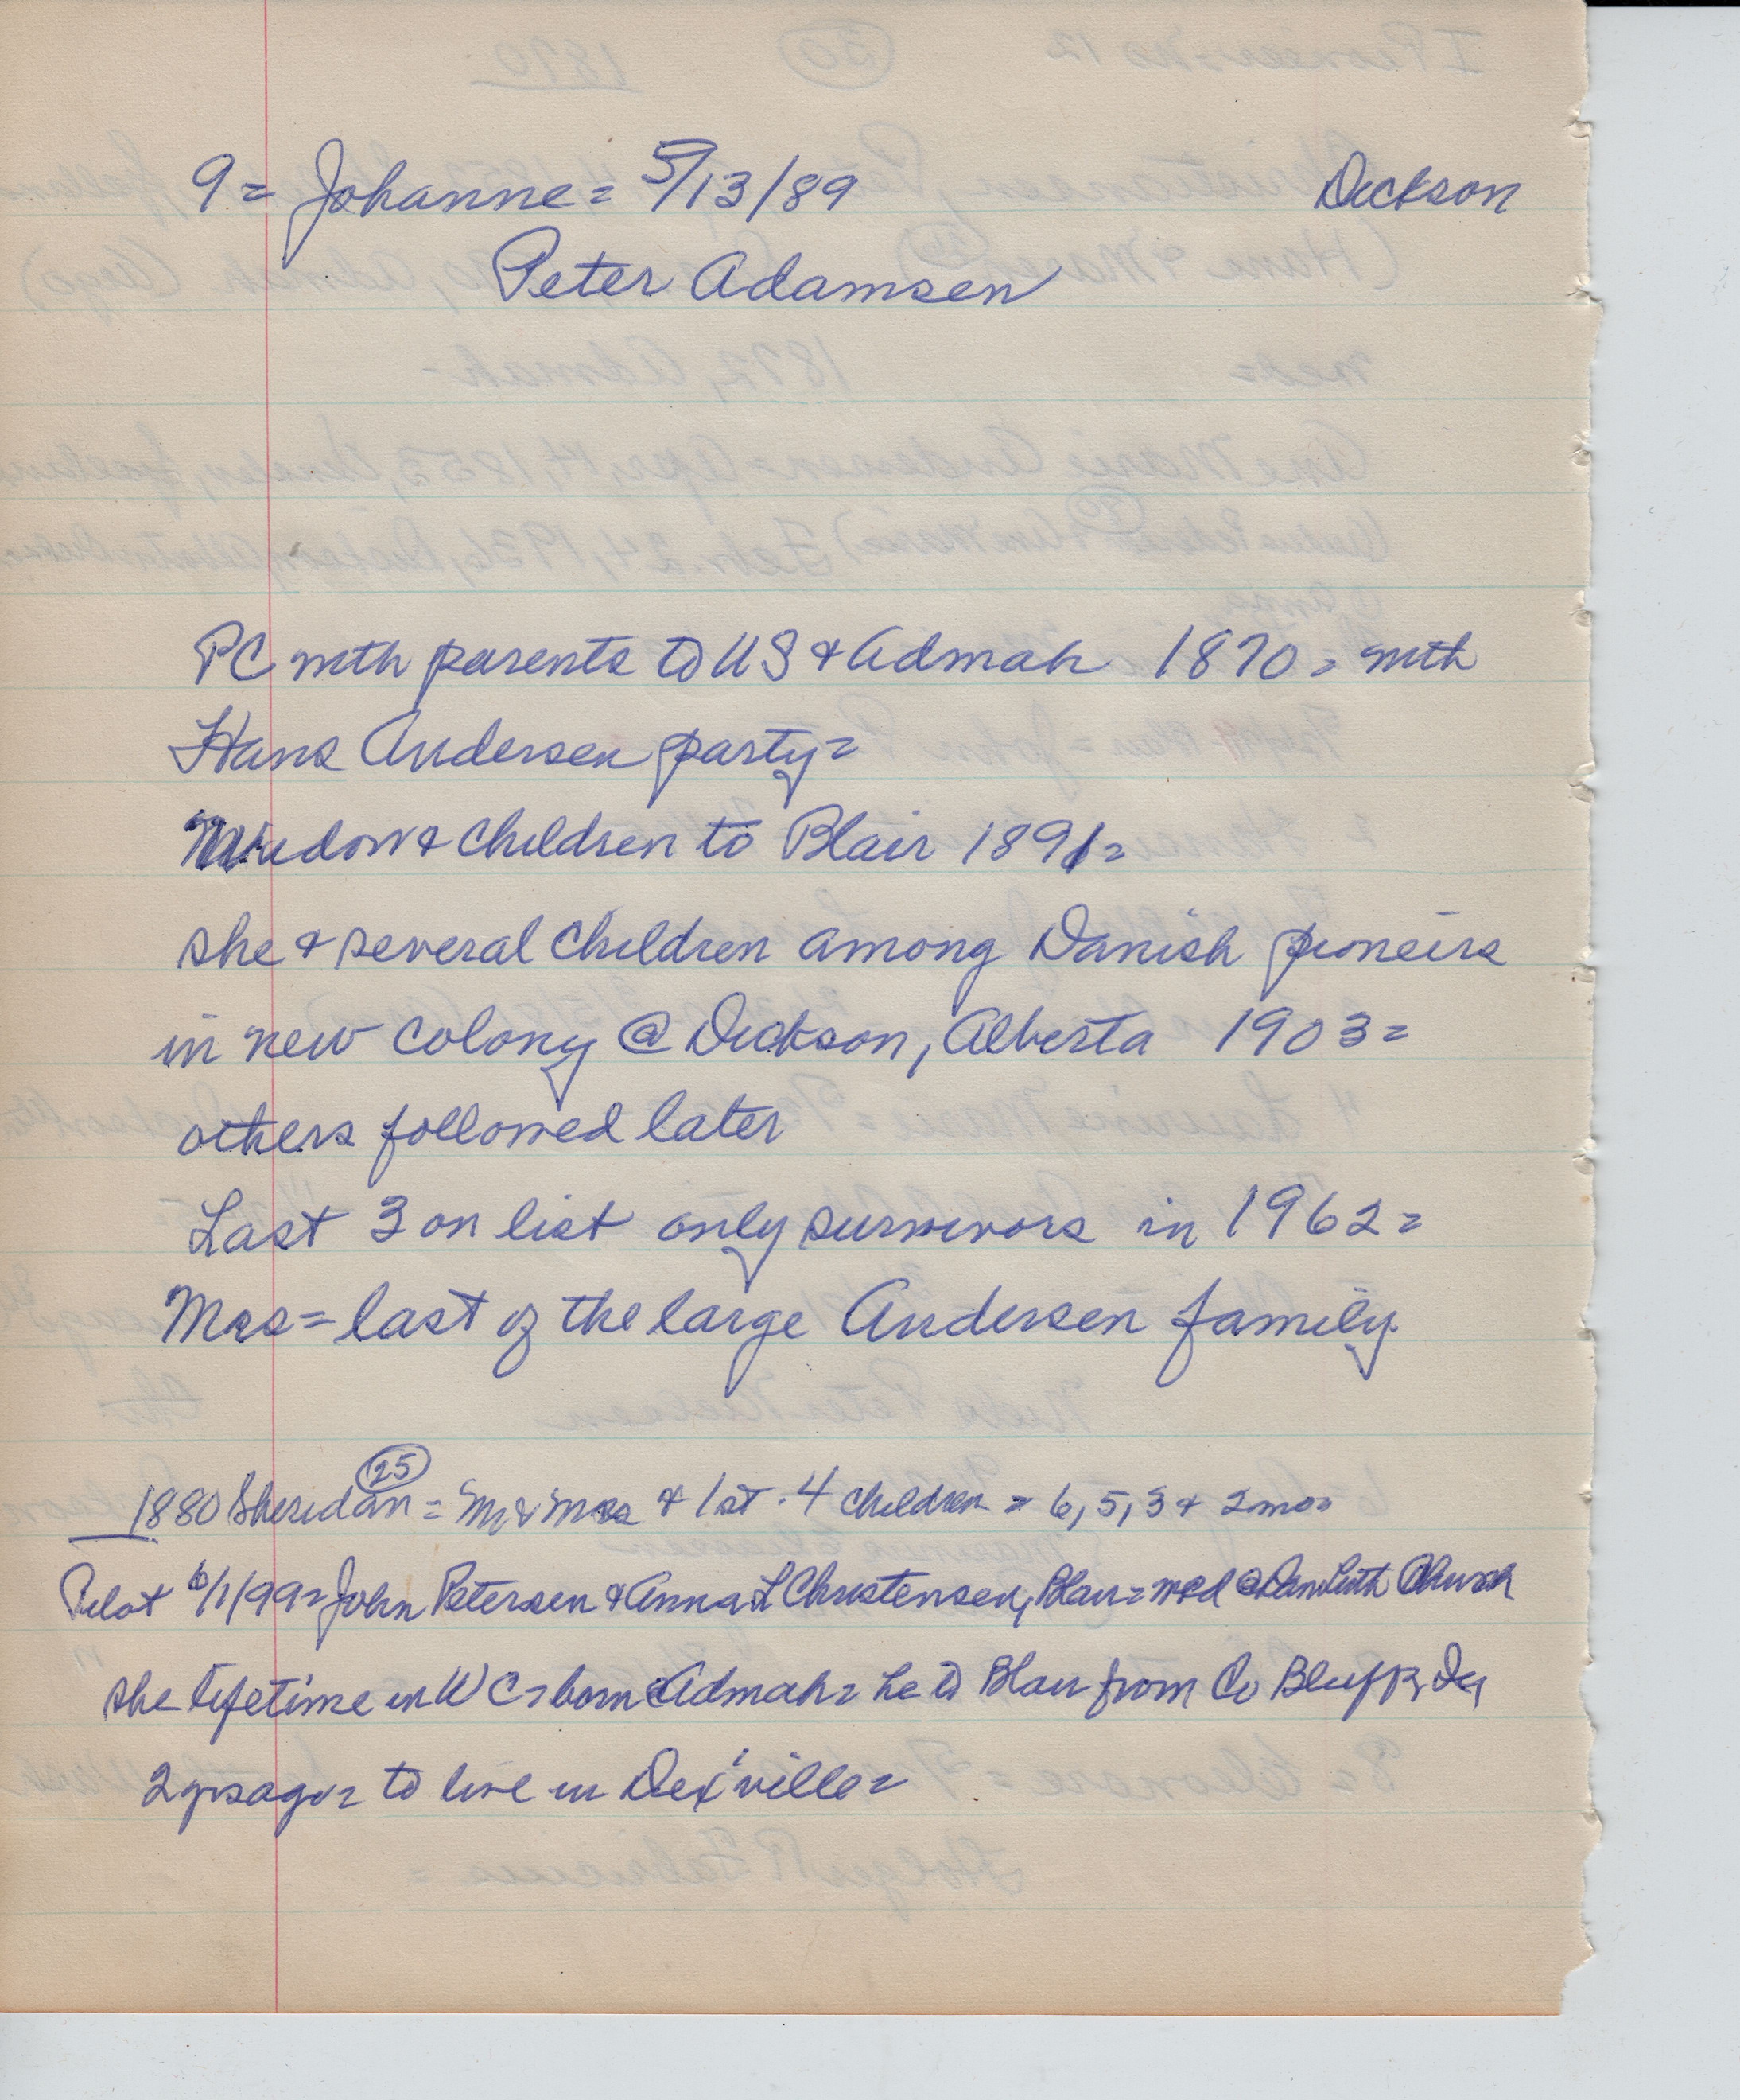 9 = Johanne = 5/13/89 Dickson
Peter Adamsen
PC with parents to US & Admah 1870 = with
Hans Andersen party =
Widow & children to Blair 1891 =
she & several children among Danish pioneirs
in new colony @ Dickson, Alberta 1903 =
others followed later
Last 3 on list only survivors in 1962 =
Mrs = last of the large Andersen family.
25
1880 Sheridan = Mr & Mrs & 1st 4 children = 6, 5, 3 & 2 mo =
Pilot 6/1/99 = John Petersen & Anna L Christensen, Blair = wed @ Dan Luth Church
she lifetime in WC = born @ Admah = he to Blair from Co Bluffs, Ia
2 yrs ago = to live in Dex'ville =